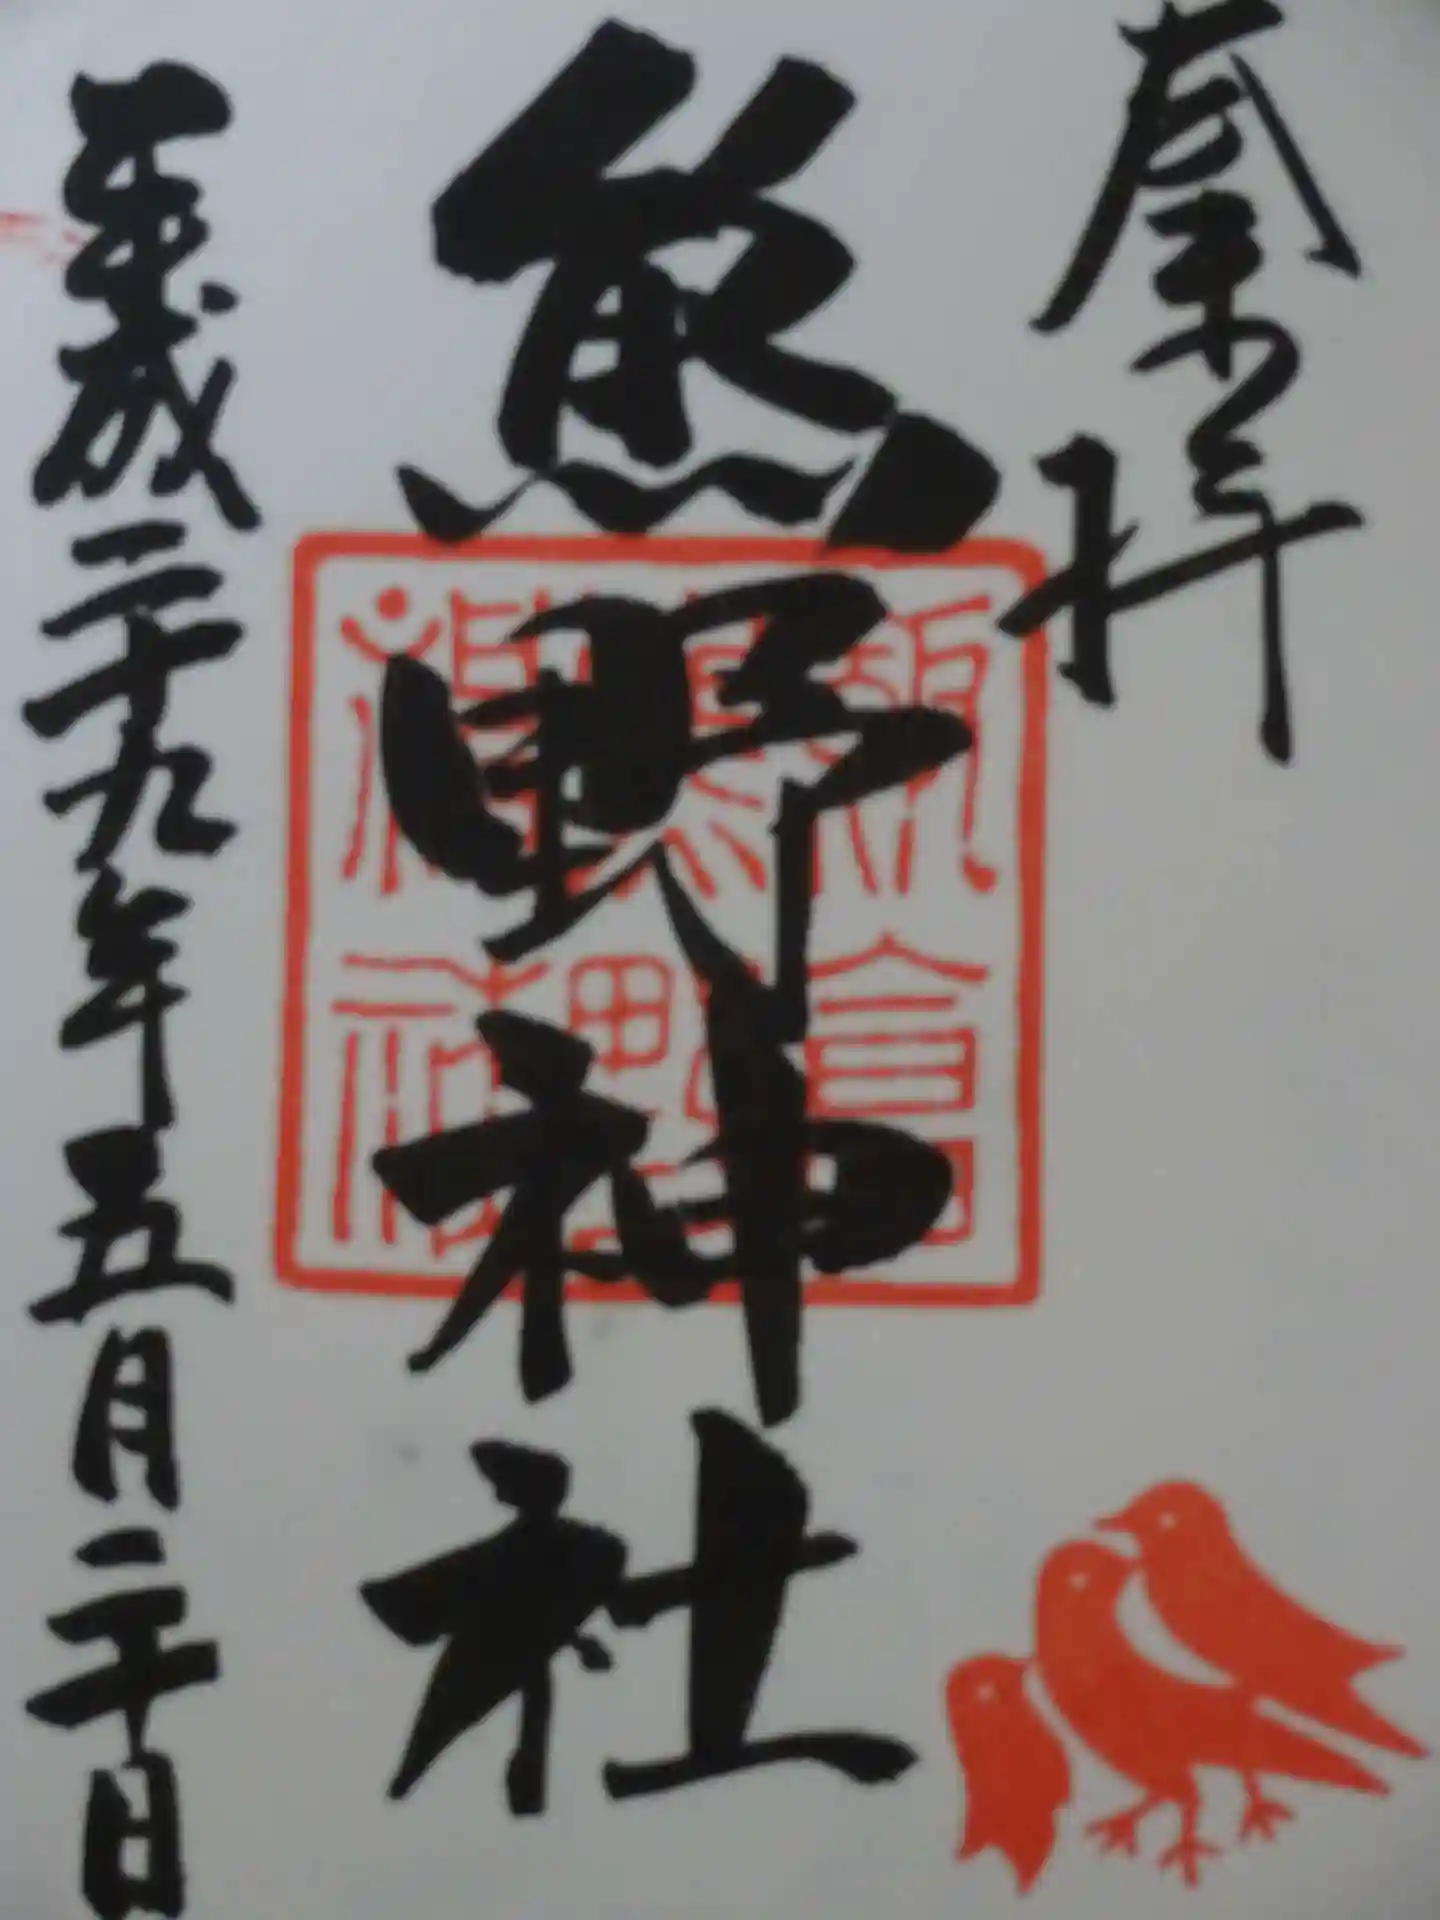 奉拝
熊野神社
平成二十九年五月二十日
新宿
熊野
神社